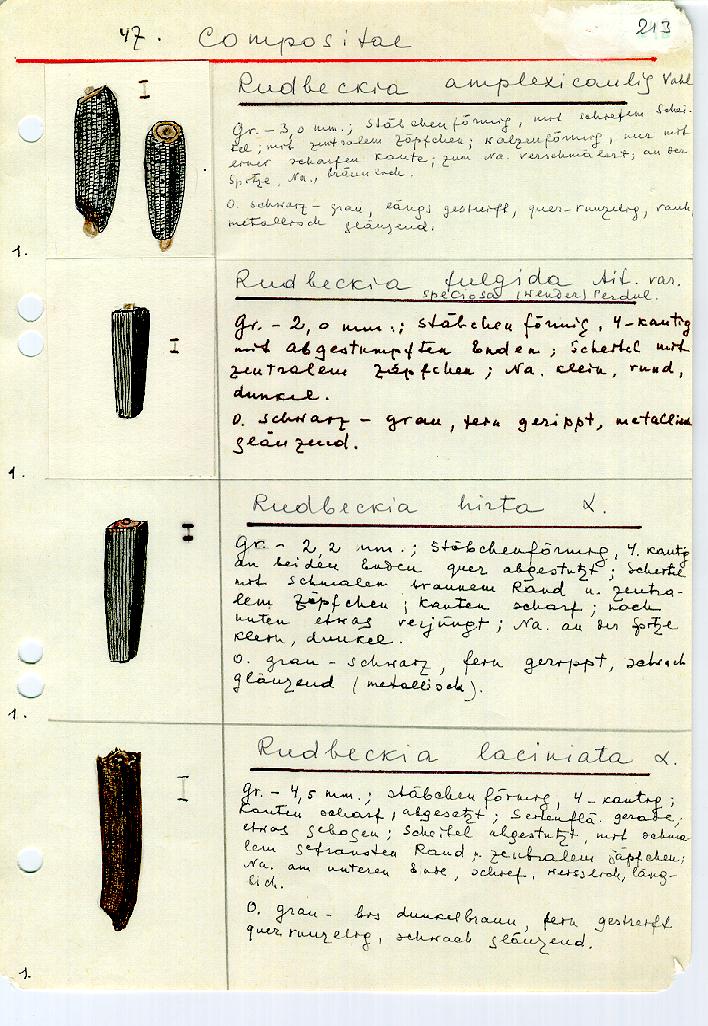 213
47. Compositae
Rudbeckia amplexicaulis Vahl
Gr. – 3,0 mm.; stäbchenförmig, mit schiefem Schei-
tel; mit zentralem Zäpfchen; walzenförmig, nur mit
einer scharfen Kante; zum Na. verschmälert; an der
Spitze, Na.,
O. schwarz – grau, längs gestreift, quer-runzelig, rauh,
metallisch glänzend.
1.
Rudbeckia fulgida Ait. var.
speciosa (Wender) Perdue.
Gr. – 2,0 mm.; stäbchenförmig, 4-kantig
mit abgestumpften Enden; Scheitel mit
zentralem Zäpfchen; Na. klein, rund,
dunkel.
O. schwarz – grau, fein gerippt, metallisch
glänzend.
1.
Rudbeckia hirta L.
Gr. – 2,2 mm.; stäbchenförmig, 4. kantig
an beiden Enden quer abgestutzt; Scheitel
mit schmalem braunem Rand u. zentra-
lem Zäpfchen; Kanten scharf; nach
unten etwas verjüngt; Na. an der Spitze
klein, dunkel.
O. grau – schwarz, fein gerippt, schwach
glänzend (metallisch).
1.
Rudbeckia laciniata L.
Gr. – 4,5 mm.; stäbchenförmig, 4-kantig;
Kanten scharf, abgesetzt; Seitenflä. gerade,
etwas gebogen; Scheitel abgestutzt, mit schma-
lem gefransten Rand u. zentralem Zäpfchen;
Na. am unteren Ende, schief, weisslich, läng-
lich.
O. grau – bis dunkelbraun, fein gestreift
quer runzelig, schwach glänzend.
1.